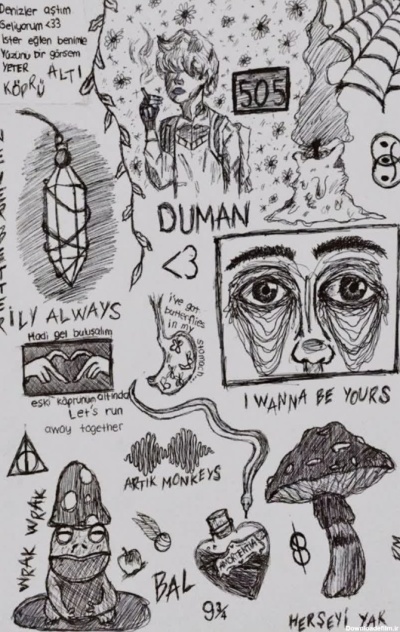 Denizler aştım
Geliyorum <33
İster eğlen benimle
Yüzünü bir görsem
YETER
KÖPRÜ ALTI
505
DUMAN
<3
ILY ALWAYS
i've got
butterflies
in my
stomach
Hadi gel buluşalım
eski köprünün altında
Let's run
away together
I WANNA BE YOURS
ARTIK MONKEYS
WRAK WRAK
BAL
9¾
HERŞEYİ YAK